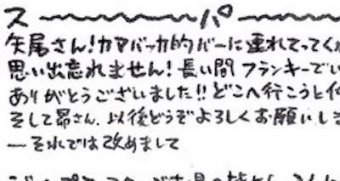 スーーーーパーーーー
矢尾さん!カマバッカ的バーに連れてってく
思い出忘れません!長い間 フランキーでい
ありがとうございました!!どこへ行こうと
そして昴さん、以後どうぞよろしくお願いしま
ーそれでは改めまして